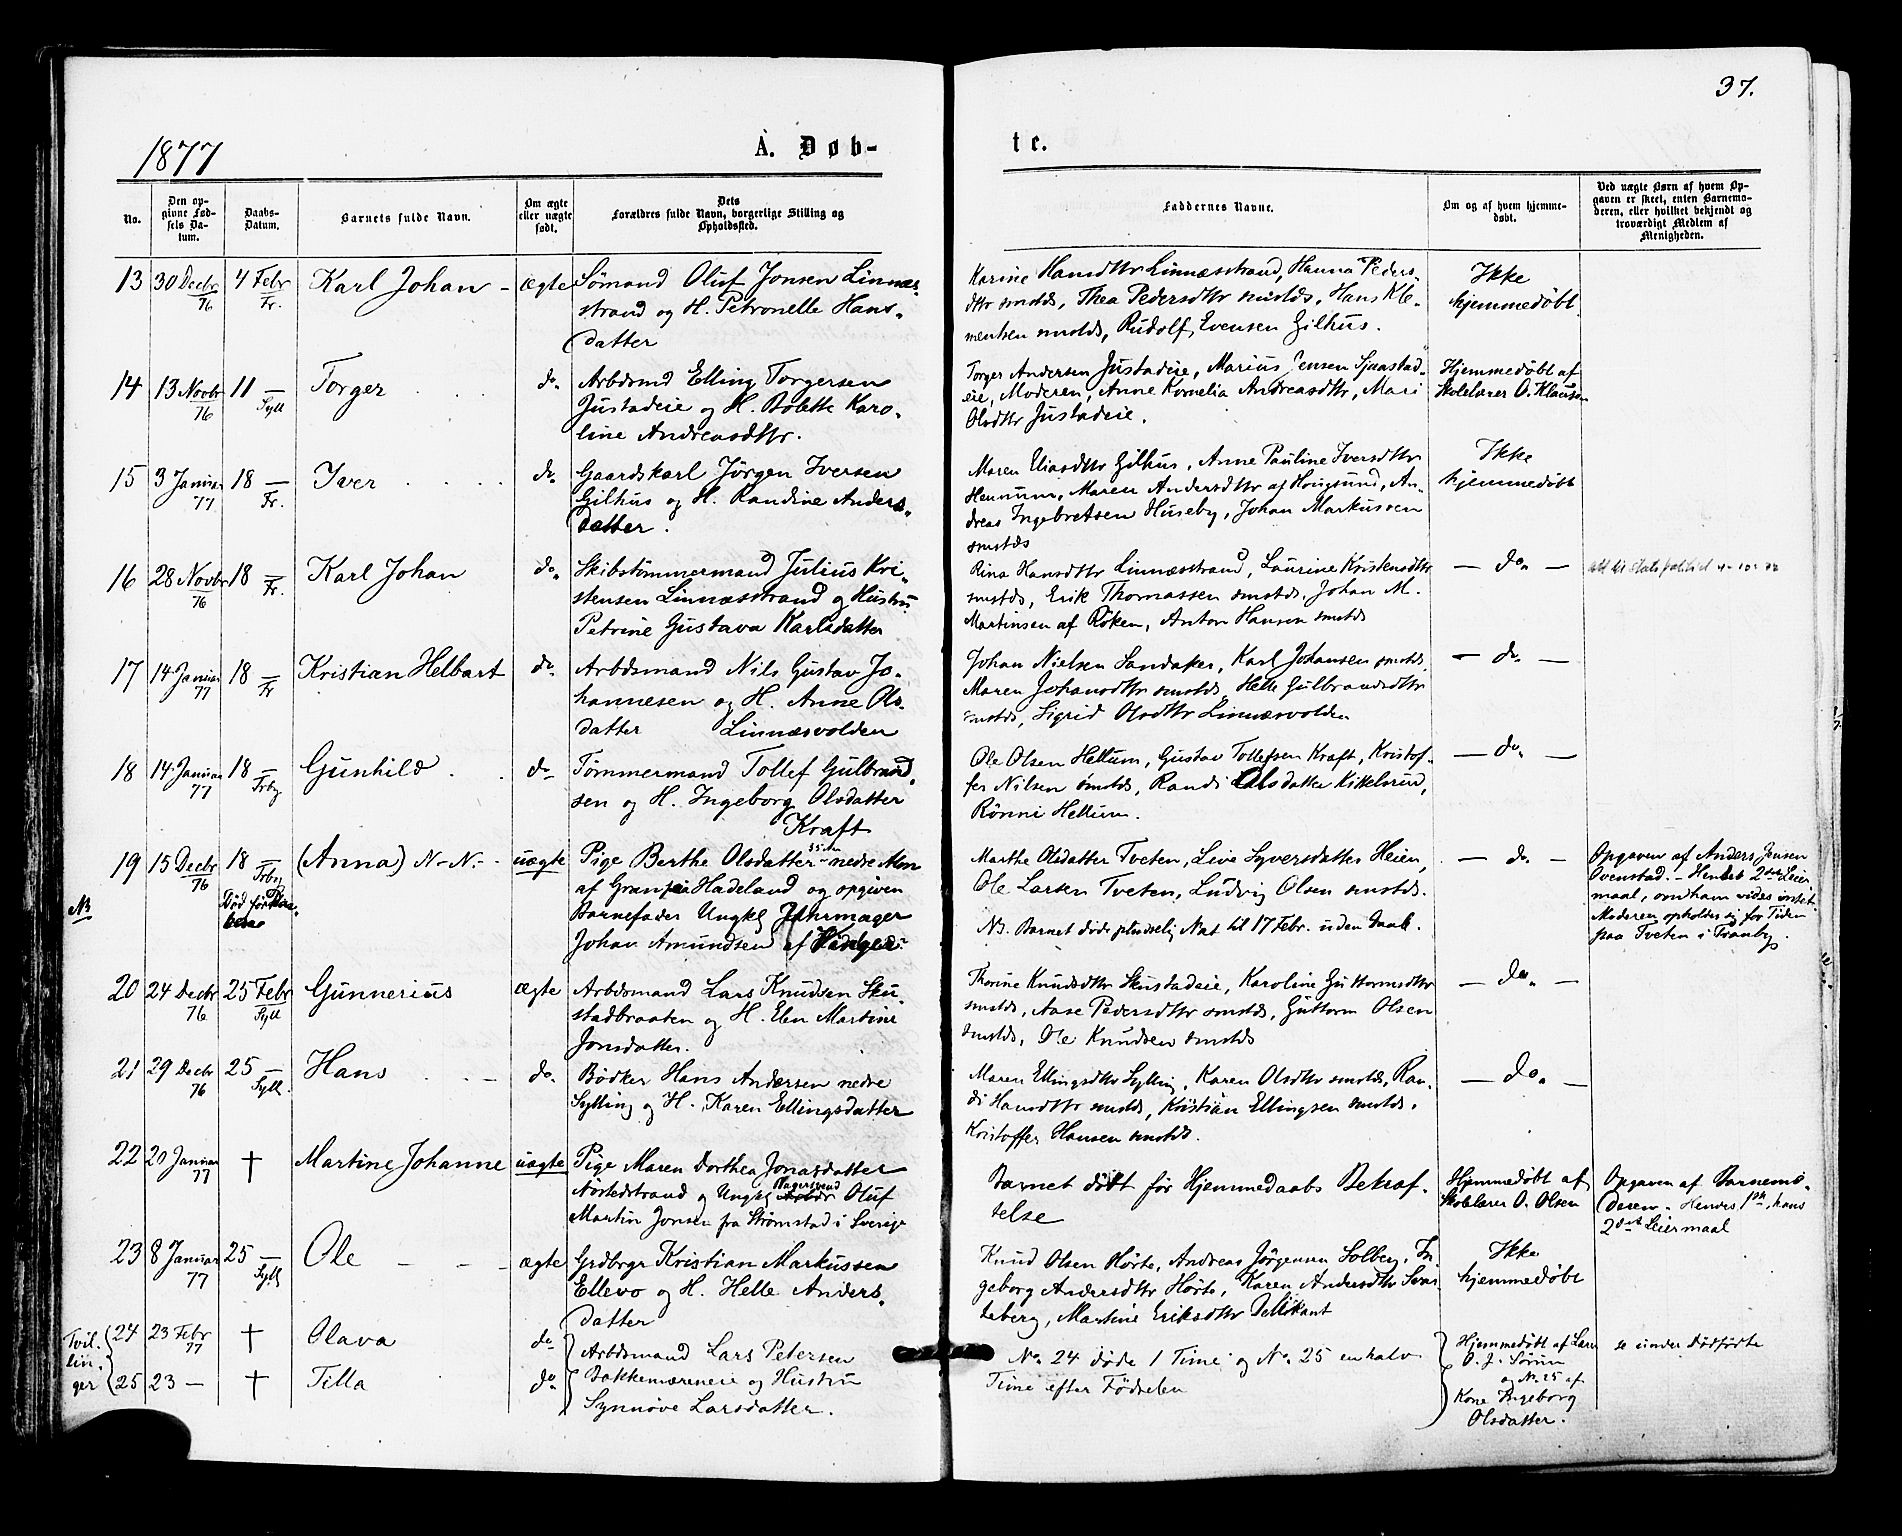 37.
1877
A. Døb-
te.
No.
Den op-
givne Fød-
sels Da-
tum.
Daabs-
Datum.
Barnets fulde Navn.
Om ægte
eller uægte
født.
Dets
Forældres fulde Navn, borgerlige Stilling og
Opholdssted.
Faddernes Navne.
Om og af hvem hjemme-
døbt.
Ved uægte Børn af hvem Op-
gaven er skeet, enten Barnemo-
deren, eller hvilket bekjendt og
troværdigt Medlem af
Menigheden.
13 30 Decbr 76 4 Febr Fr. Karl Johan - ægte
Sømand Oluf Jonsen Linnæs-
strand og H. Petronelle Hans-
datter
Karine Hansdttr Linnæsstrand, Hanna Peders-
dttr smstds, Thea Pedersdttr smstds, Hans Kle-
mentsen smstds, Rudolf Evensen Gilhus.
Ikke
hjemmedøbt
14 13 Novbr 76 11 — Syll Torger . . . do.
Arbdsmd Elling Torgersen
Justadeie og H. Bolette Karo-
line Andreasdttr.
Torger Andersen Justadeie, Marius Jensen
eie, Moderen, Anne Kornelia Andreasdttr, Mari
Olsdttr Justadeie.
Hjemmedøbt af
Skolelærer O. Klausen
15 3 Januar 77 18 — Fr. Iver . . . . do.
Gaardskarl Jørgen Iversen
Gilhus og H. Randine Anders-
datter.
Maren Eliasdttr Gilhus, Anne Pauline Iversdttr
Hennum, Maren Andersdttr af Hougsund, An-
dreas Ingebretsen Huseby, Johan Markussen
smstds
Ikke
hjemmedøbt
16 28 Novbr 76 18 — Fr. Karl Johan do.
Skibstømmermand Julius Kri-
stensen Linnæsstrand og Hustru
Petrine Gustava Karlsdatter
Rina Hansdttr Linnæsstrand, Laurine Kristensdttr
smstds, Erik Thomassen smstds, Johan M.
Martinsen af Røken, Anton Hansen smstds
— do. —
17 14 Januar 77 18 — Fr Kristian Helbart do.
Arbdsmand Nils Gustav Jo-
hannesen og H. Anne Ols-
datter Linnæsvolden
Johan Nielsen Sandaker, Karl Johansen smstds,
Maren Johansdttr smstds, Helle Gulbrandsdttr
smstds, Sigrid Olsdttr Linnæsvolden
— do. —
18 14 Januar 77 18 — Frby Gunhild . . do.
Tømmermand Tollef Gulbrand-
sen og H. Ingeborg Olsdatter
Kraft
Ole Olsen Hellum, Gustav Tollefsen Kraft, Kristof-
fer Nilsen smstds, Randi Olsdatter Kikkelsrud,
Rønni Hellum.
— do. —
NB
19 15 Decbr 76 18 — Frby (Anna) N-N.- uægte
Død før
Pige Berthe Olsdatter nedre
af Gran paa Hadeland og opgiven
Barnefader Ungkl
Johan Amundsen af
Marthe Olsdatter Tveten, Live Syversdatter Heien,
Ole Larsen Tveten, Ludvig Olsen smstds.
NB. Barnet døde pludselig Nat til 17 Febr. uden Daab.
— do. —
Opgaven af Anders Jensen
Ovenstad. - Hendes 2det Leier
maal, om ham vides intet.
Moderen opholder sig for Tiden
paa Tveten i Tranby.
20 24 Decbr 76 25 Febr Syll Gunnerius ægte
Arbdsmand Lars Knudsen Sku-
stadbraaten og H. Elen Martine
Jonsdatter.
Thorine Knudsdttr Skustadeie, Karoline Guttormsdttr
smstds, Aase Pedersdttr smstds, Guttorm Olsen
smstds, Ole Knudsen smstds
— do. —
21 29 Decbr 76 25 — Syll. Hans . . - do.
Bødker Hans Andersen nedre
Sylling og H. Karen Ellingsdatter
Maren Ellingsdttr Sylling, Karen Olsdttr smstds, Ran-
di Hansdttr smstds, Kristian Ellingsen smstds,
Kristoffer Hansen smstds.
— do. —
22 20 Januar 77 † Martine Johanne uægte
Pige Maren Dorthea Jonasdatter
Nørstedstrand og Ungkl Bagersvend Arbdr Oluf
Martin Jonsen fra Strømstad i Sverige
Barnet dødt før Hjemmedaabs Bekræf-
telse
Hjemmedøbt af
Skolelærer O. Olsen
Opgaven af Barnemo-
deren. - Hendes 1ste, hans
2det Leiermaal
23 8 Januar 77 25 — Syll Ole - - - ægte
Grdbrgr Kristian Markussen
Ellevo og H. Helle Anders-
datter
Knud Olsen Hørte, Andreas Jørgensen Solberg, In-
geborg Andersdttr Hørte, Karen Andersdttr Svar-
teberg, Martine Eriksdttr Pellikant
Ikke
hjemmedøbt
Tvil-
lin-
ger
24 23 Febr 77 † Olava do
25 23 — † Tilla do.
Arbdsmand Lars Petersen
Bakkemæreneie og Hustru
Synnøve Larsdatter.
No. 24 døde 1 Time og No. 25 en halv
Time efter Fødselen
Hjemmedøbt af Lars
O. J. Sørum
og No. 25 af
Kone Ingeborg
Olsdatter.
se under dødfødte